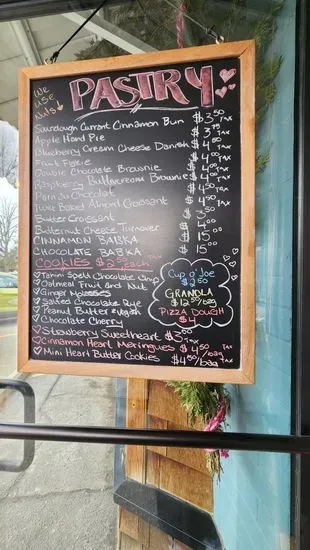 WE USE NUTS ↓
PASTRY
Sourdough Currant Cinnamon Bun $3.50
Apple Hand Pie $3.75 TAX
Blueberry Cream Cheese Danish $4.00 TAX
Fruit $4.00 TAX
Double Chocolate Brownie $4.00 TAX
Raspberry Buttercream Brownie $4.75 TAX
Pain Au Chocolat $4
Twice Baked Almond Croissant
Butter Croissant $3.50
Butternut Cheese Turnover $4
CINNAMON BABKA $15.00
CHOCOLATE BABKA $15.00
COOKIES $2.50 each TAX
♡ Tahini Spelt Chocolate Chip
♡ Oatmeal Fruit and Nut
♡ Ginger Molasses
♡ Salted Chocolate Rye
♡ Peanut Butter vegan
♡ Chocolate Cherry
♡ Strawberry Sweetheart $3.00
♡ Cinnamon Heart Meringues $4.50/bag TAX
♡ Mini Heart Butter Cookies $4.50/bag TAX
Cup o' Joe
$2.50
GRANOLA
$12.50/bag
PIZZA DOUGH
$4